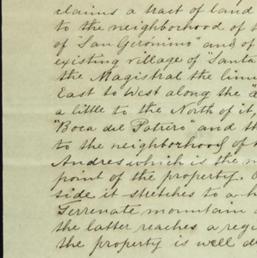 claims a tract of land
to the neighborhood of
of "San Geronimo" and of
existing village of "Santa
the Magistral the
East to West along the
a little to the North of it,
"Boca del Potrero" and th
to the neighborhood of
Andres which is the
point of the property.
side it stretches to a h
Terrenate mountain
the latter reaches a
the property is well d